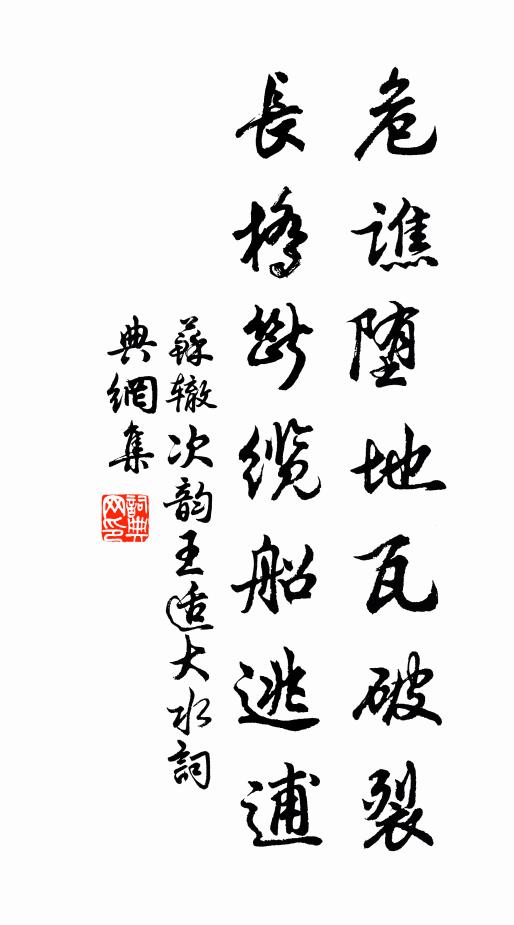 危譙堕地瓦破裂
長橋斷纜船逃逋
蘇辙次韵王适大水詞
典網集
詞典网印